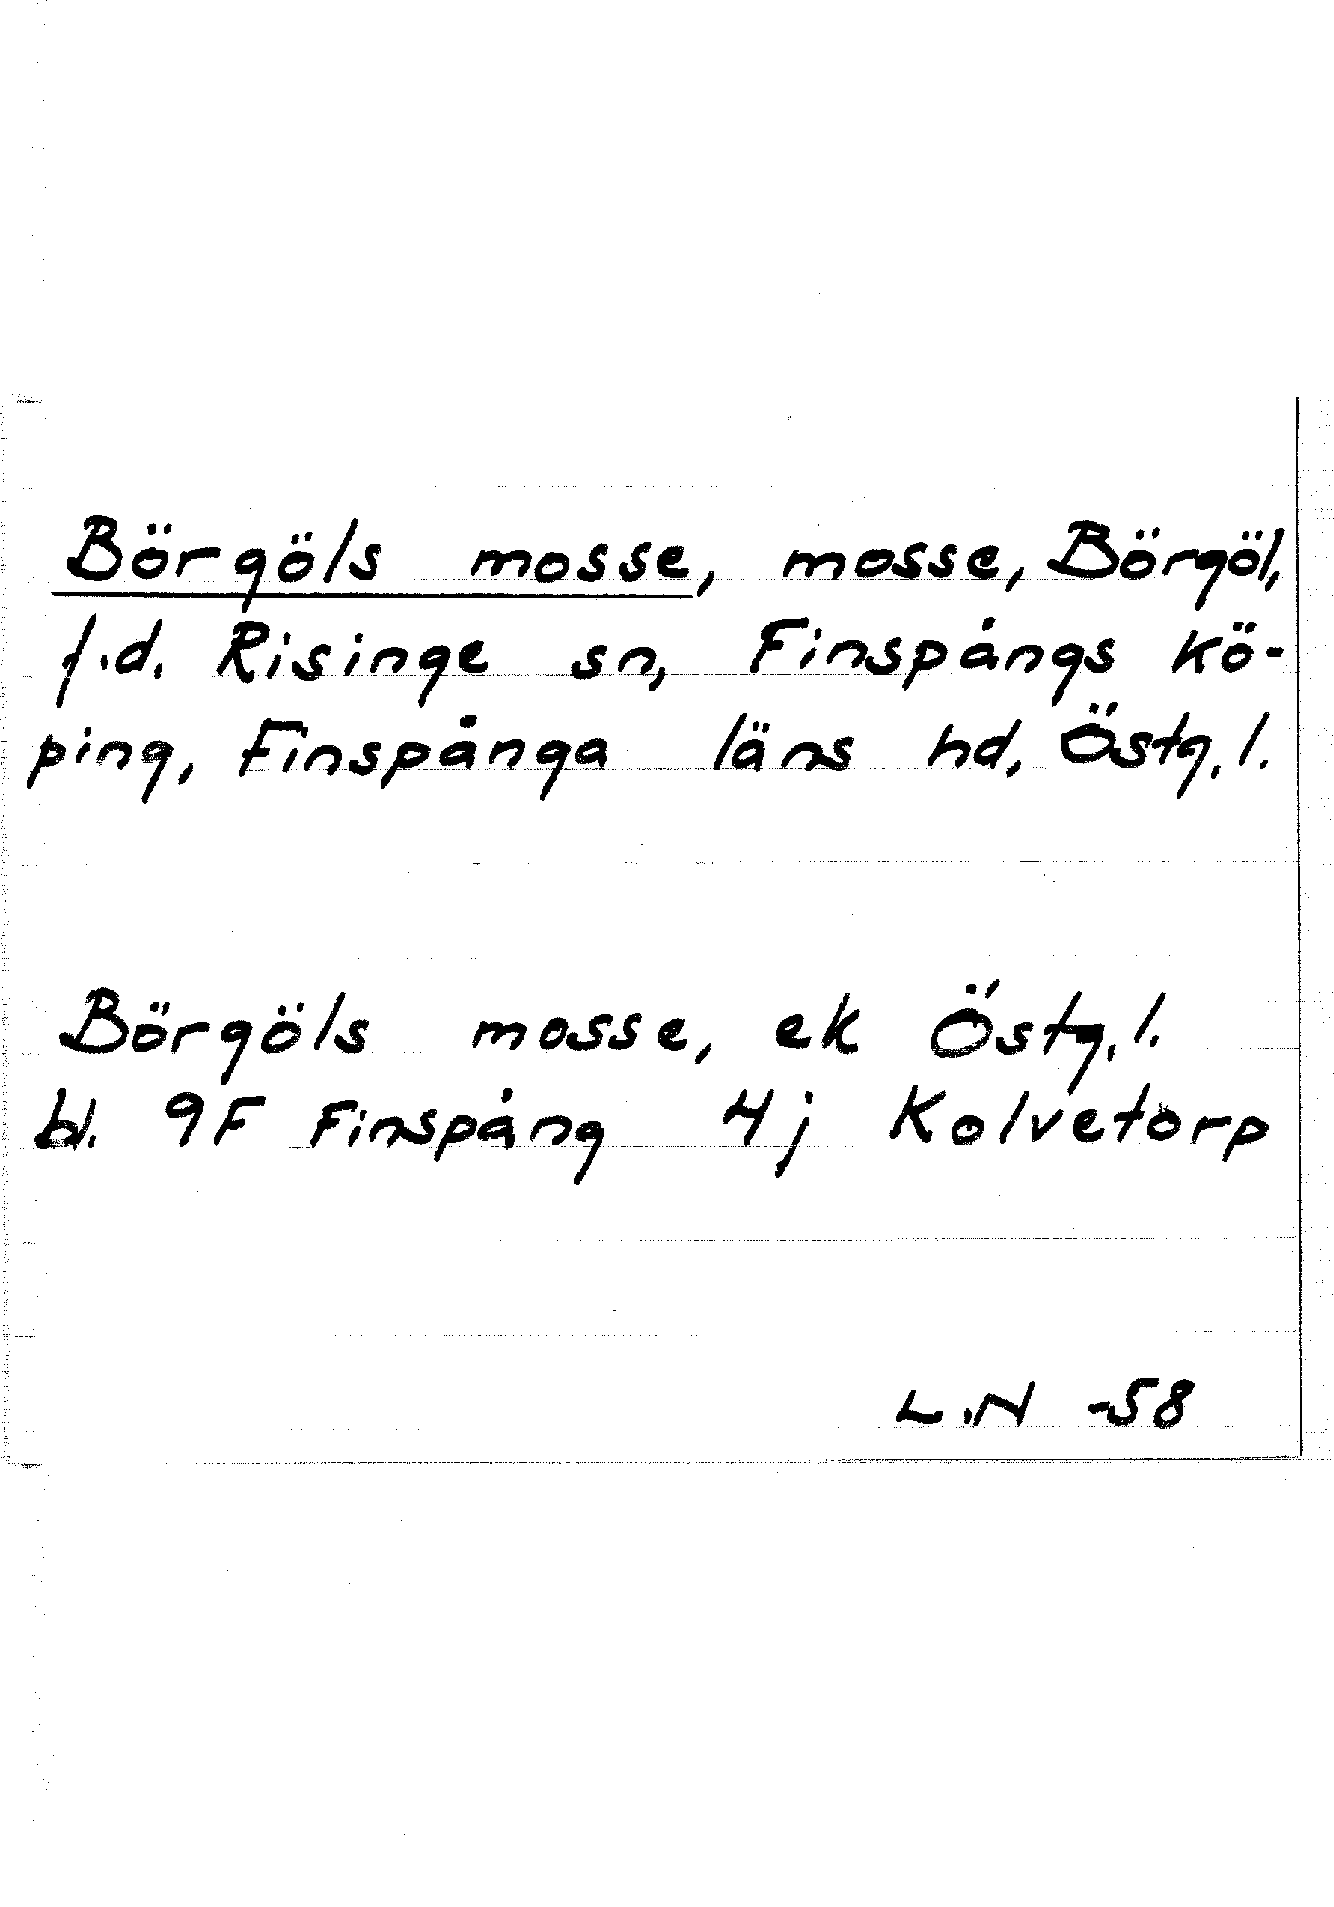 Börgöls mosse, mosse, Börgöl,
f.d. Risinge sn, Finspångs kö-
ping, Finspånga läns hd, Östg.l.
Börgöls mosse, ek Östg.l.
bl. 9F Finspång 4j Kolvetorp
L.N -58